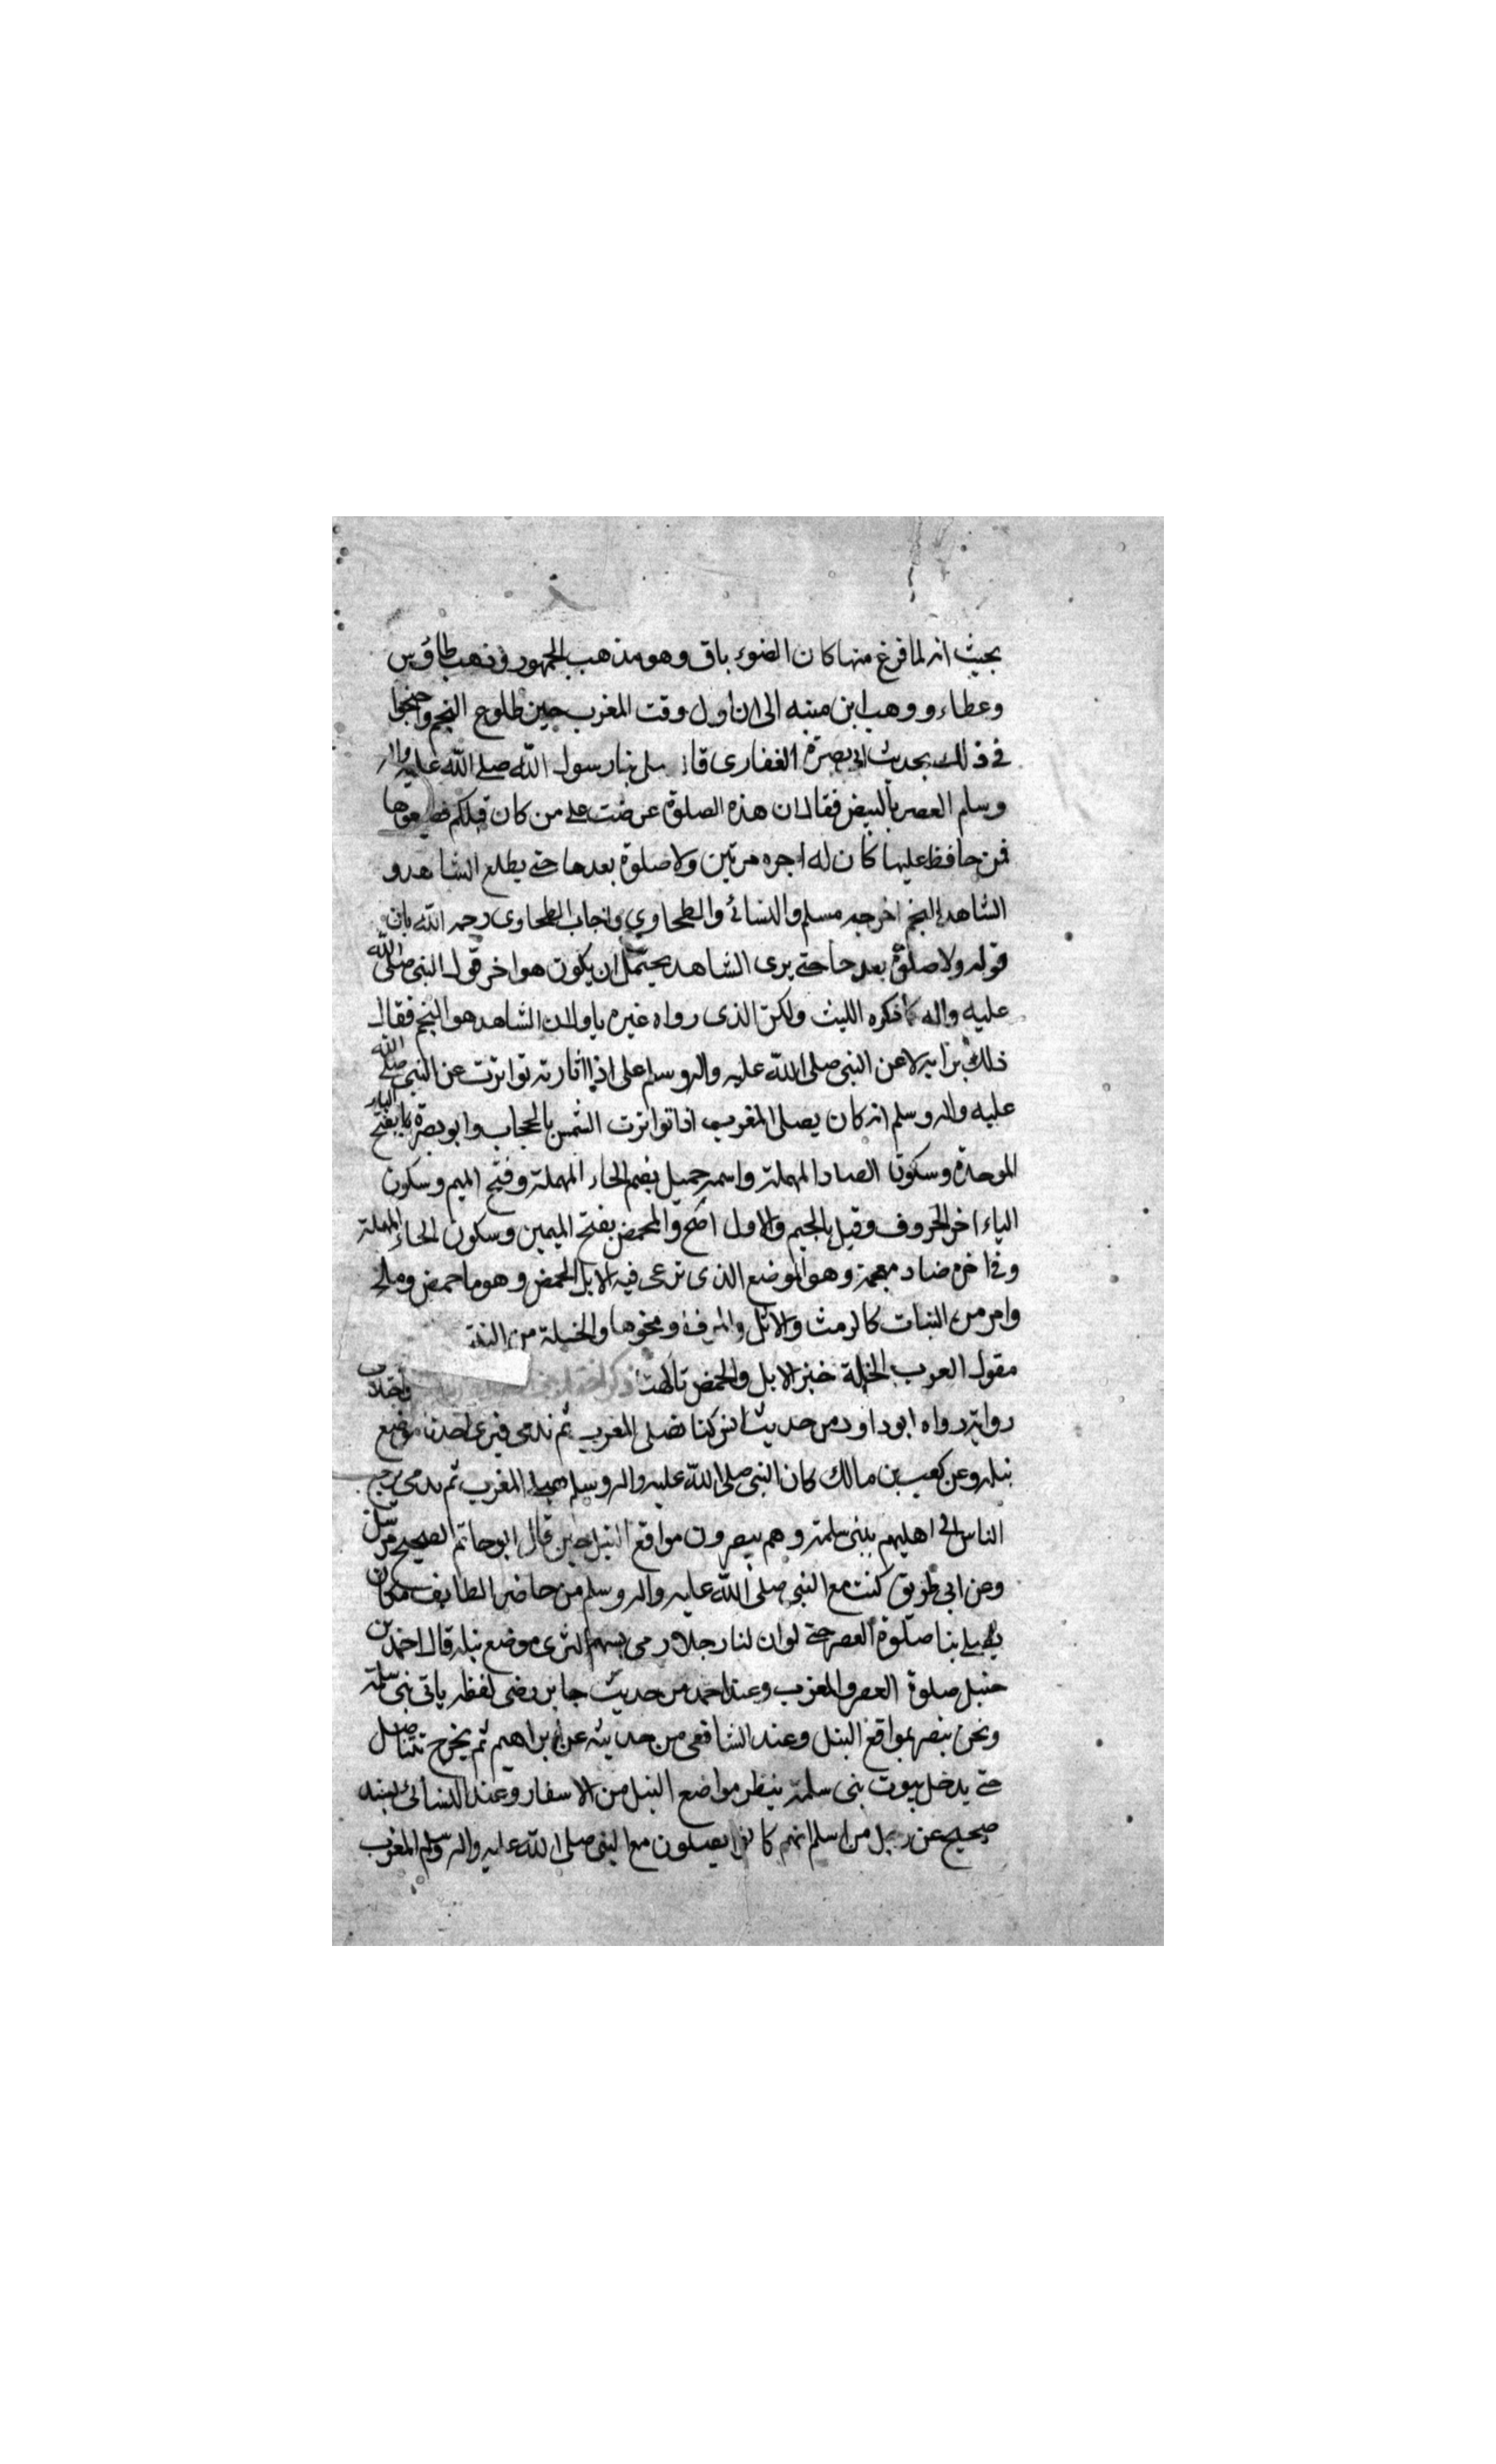 بحيث انه لما فرغ منها كان الضوء باق وهو مذهب الجمهور وذهب طاؤس
وعطاء ووهب ابن منبه الى ان اول وقت المغرب حين طلوع النجم واحتجوا
في ذلك بحديث ابي بصرة الغفاري قال صلى بنا رسول الله صلى الله عليه واله
وسلم العصر بالمخمص فقال ان هذه الصلوة عرضت على من كان قبلكم فضيعوها
فمن حافظ عليها كان له اجره مرتين ولا صلوة بعدها حتى يطلع الشاهد و
الشاهد النجم اخرجه مسلم والنسائي والطحاوي واجاب الطحاوي رحمه الله بان
قوله ولا صلوة بعدها حتى يرى الشاهد يحتمل ان يكون هو اخر قول النبي صلى الله
عليه واله كما ذكره الليث ولكن الذي رواه غيره ياول ان الشاهد هو النجم فقال
ذلك برايه لا عن النبي صلى الله عليه واله وسلم على اثاره تواترت عن النبي صلى الله
عليه واله وسلم انه كان يصلى المغرب اذا تواترت الشمس بالحجاب وابو بصرة بفتح الباء
الموحدة وسكون الصاد المهملة واسمه حميل بضم الحاء المهملة وفتح الميم وسكون
الياء اخر الحروف وقيل بالجيم والاول اصح والمحمض بفتح الميمين وسكون الحاء المهملة
وفي اخره ضاد معجمة وهو الموضع الذي ترعى فيه الابل الحمض وهو ما حمض وملح
وامر من النبات كالرمث والاثل والطرفا ونحوها والخلة من النبت
مقول العرب الخلة خبز الابل والحمض فاكهتها
رواية رواه ابو داود من حديث انس كنا نصلى المغرب ثم نرمى فيرى احدنا موضع
نبله وعن كعب بن مالك كان النبي صلى الله عليه واله وسلم يصلى المغرب ثم يرجع
الناس الى اهليهم ببنى سلمة وهم يبصرون مواقع النبل حين قال ابو حاتم الصحيح مرسل
وعن ابي طريق كنت مع النبي صلى الله عليه واله وسلم من حاضر الطايف فكان
يصلى بنا صلوة العصر حتى لوان لنا رجلا رمى بسهم لترى موضع نبله قال احمد بن
حنبل صلوة العصر والمغرب وعند احمد من حديث جابر رضى لفظه ياتى بنى سلمة
ونحن نبصر بمواقع النبل وعند الشافعى من حديثه عن ابراهيم ثم يخرج نتناضل
حتى يدخل بيوت بنى سلمة ينظر مواضع النبل من الاسفار وعند النسائي بسند
صحيح عن رجل من اسلم انهم كانوا يصلون مع النبي صلى الله عليه واله وسلم المغرب